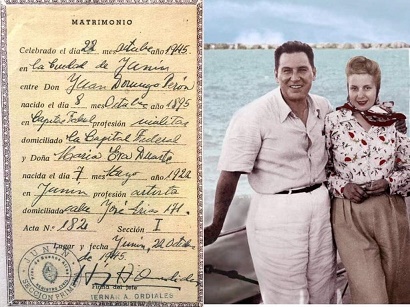 MATRIMONIO
Celebrado el día 22 mes Octubre año 1945
en la Ciudad de Junín
entre Don Juan Domingo Perón
nacido el día 8 mes Octubre año 1895
en Capital Federal profesión militar
domiciliado La Capital Federal
y Doña María Eva Duarte
nacida el día 7 mes Mayo año 1922
en Junín profesión artista
domiciliada calle José Arias 171.
Acta Nº 182 Sección I
Lugar y fecha Junín, 22 Octubre
de 1945.
Firma del jefe
HERNAN A. ORDIALES
JUNIN
SECCION PRIMERA